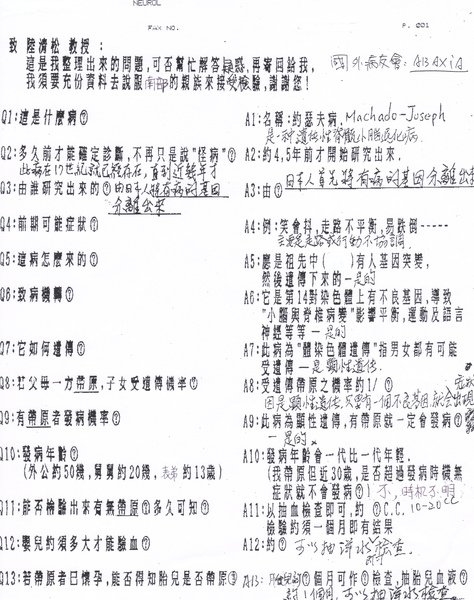 NEUROL
FAX NO.
P. 001
致 陸清松 教授：
這是我整理出來的問題,可否幫忙解答疑惑,再寄回給我,
我須要充份資料去說服南部的親族來接受檢驗,謝謝您！
國外病友會：ABAXIA
Q1:這是什麼病?
A1:名稱:約瑟夫病, Machado-Joseph
是一種遺傳性脊髓小腦退化病.
Q2:多久前才能確定診斷,不再只是說"怪病"?
A2:約4,5年前才開始研究出來.
此病在17世紀就已經存在,直到近幾年才
Q3:由誰研究出來的?由日本人將有病的基因
分離出來
A3:由?日本人首先將有病的基因分離出來
Q4:前期可能症狀?
A4:例:笑會抖,走路不平衡,易跌倒-----
主要是走路或行動不協調.
Q5:這病怎麼來的?
A5:應是祖先中( )有人基因突變,
然後遺傳下來的—是的
Q6:致病機轉?
A6:它是第14對染色體上有不良基因,導致
"小腦與脊椎病變"影響平衡,運動及語言
神經等等—是的
Q7:它如何遺傳?
A7:此病為"體染色體遺傳"指男女都有可能
受遺傳—是顯性遺傳.
Q8:扛父母一方帶原,子女受遺傳機率?
A8:受遺傳帶原之機率約1/ ?
因是顯性遺傳,只要有一個不良基因,就會出現
Q9:有帶原者發病機率?
A9:此病為顯性遺傳,有帶原就一定會發病?
—是的.
Q10:發病年齡?
(外公約50幾,舅舅約20幾,表弟約13歲)
A10:發病年齡會一代比一代年輕.
(我帶原但近30歲,是否超過發病時機無
症狀就不會發病?)不,時機不明.
Q11:能否檢驗出來有無帶原?多久可知?
A11:以抽血檢查即可,約?C.C. 10-20CC
檢驗約須一個月即有結果
Q12:嬰兒約須多大才能驗血?
A12:約? 可以抽羊水檢查.
Q13:若帶原者已懷孕,能否得知胎兒是否帶原?
A13: ?個月可作?檢查,抽胎兒血液?
可以抽羊水檢查.